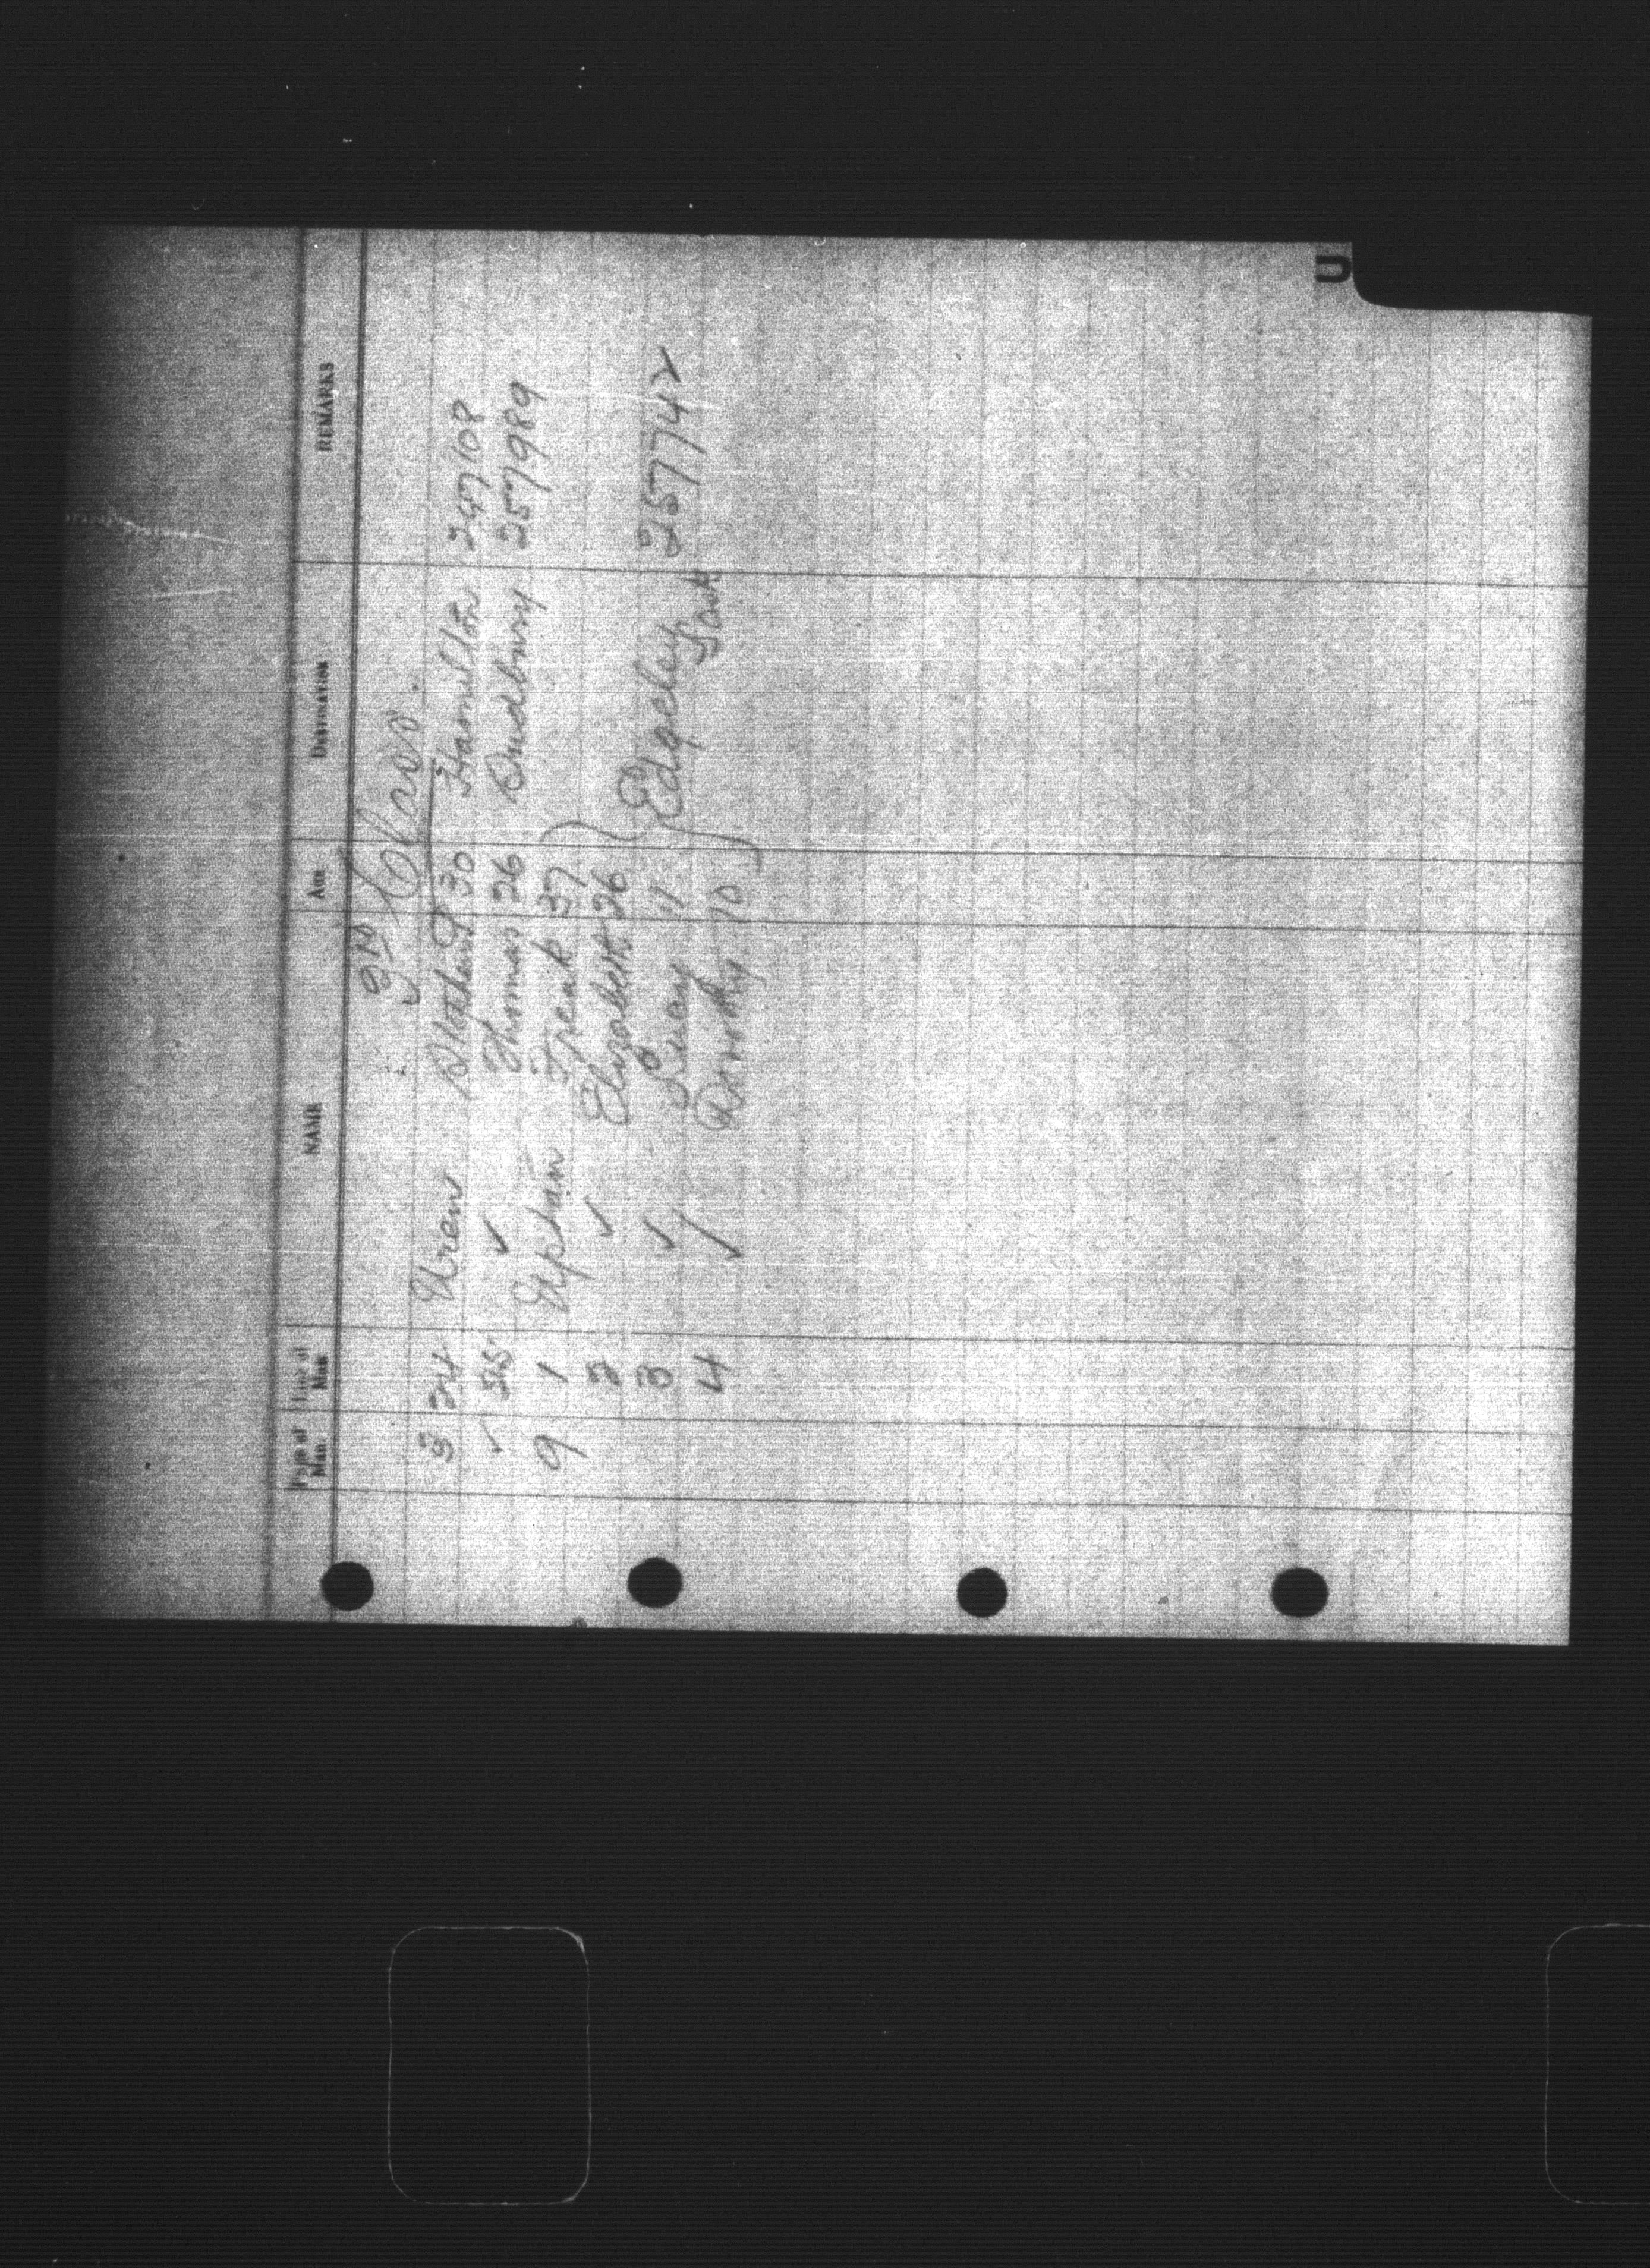 Page of Man. Line of Man. NAME AGE DESTINATION REMARKS
3rd Class.
3 24 Uren 30 Hamilton 247108
✓ 25 ✓ Thomas 26 Sudbury 257989
9 1 Upham Frank 37
2 ✓ Elizabeth 26
3 ✓ 11 Edgeley 257742
4 ✓ Dorothy 10 Sask
U